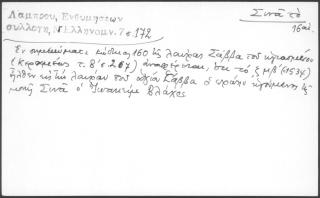 Σινᾶ τὸ
16αι.
Λάμπρου, Ἐνθυμήσεων
συλλογή, Ν. Ἑλληνομν. 7 σ. 172
Ἐν σημειώματι κώδικος 160 τῆς λαύρας Σάββα τοῦ ἡγιασμένου
(Κεραμέως τ. Β' σ. 267) ἀναφέρεται, ὅτι τὸ ζμβ' (1534)
ἦλθεν εἰς τὴν λαύραν τοῦ ἁγίου Σάββα ὁ ἡγούμενος τῆς
μονῆς Σινᾶ ὁ Βλάχος